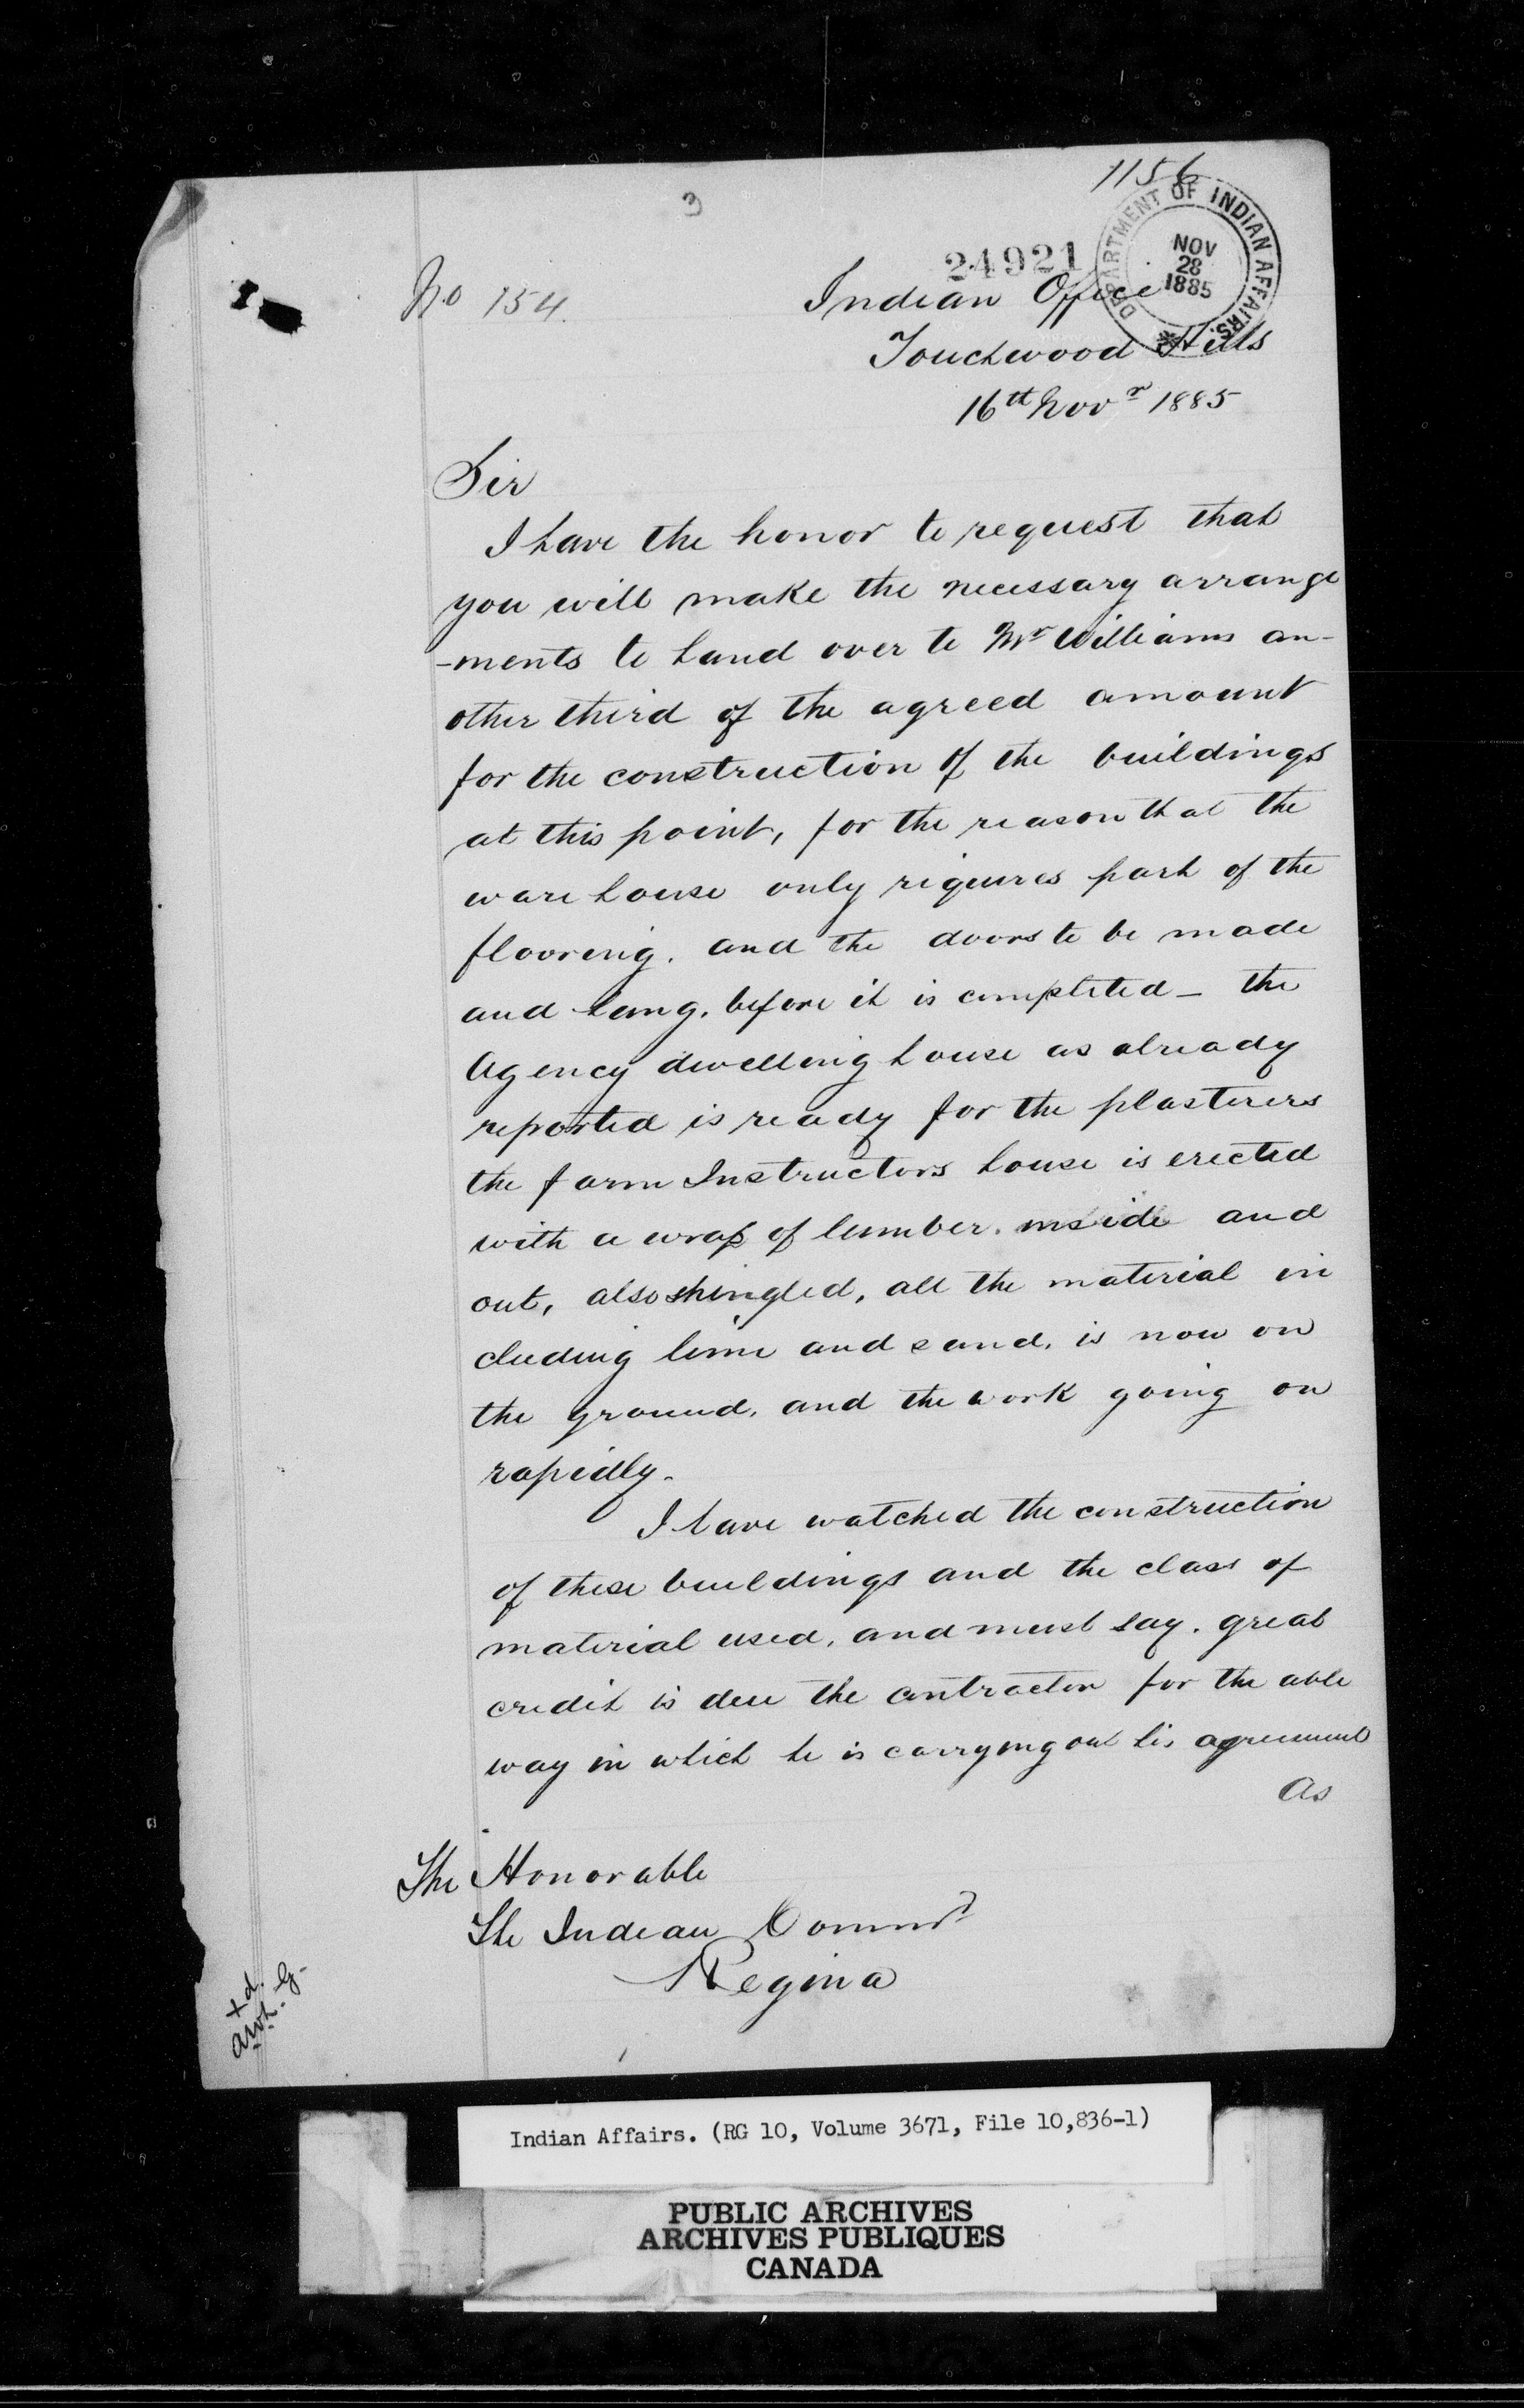 1156
3
24921
DEPARTMENT OF INDIAN AFFAIRS.
NOV
28
1885
No 154.
Indian Office
Touchwood Hills
16th Novr 1885
Sir
I have the honor to request that
you will make the necessary arrange
-ments to hand over to Mr Williams an-
other third of the agreed amount
for the construction of the buildings
at this point, for the reason that the
ware house only riquires part of the
flooring. and the doors to be made
and hung. before it is completed - the
Agency dwelling house as already
reported is ready for the plasterers
the farm Instructors house is erected
with a wrap of lumber. inside and
out, also shingled, all the material in
cluding lime and sand. is now on
the ground. and the work going on
rapidly.
I have watched the construction
of these buildings and the class of
material used. and must say. great
credit is due the contractor for the able
way in which he is carrying out his agreement
As
The Honorable
The Indian Commr
Regina
Indian Affairs. (RG 10, Volume 3671, File 10,836-1)
PUBLIC ARCHIVES
ARCHIVES PUBLIQUES
CANADA